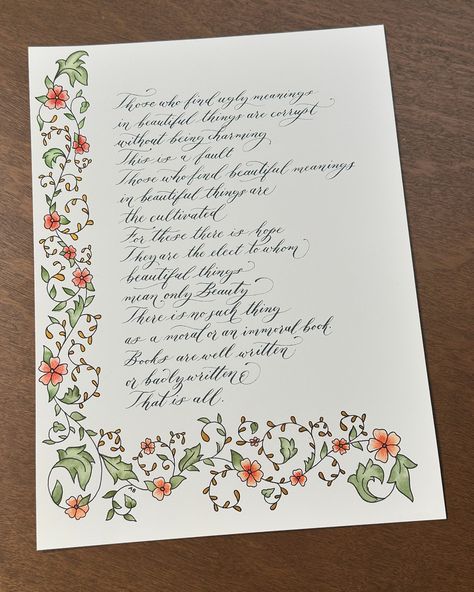 Those who find ugly meanings
in beautiful things are corrupt
without being charming
This is a fault
Those who find beautiful meanings
in beautiful things are
the cultivated
For these there is hope
They are the elect to whom
beautiful things
mean only Beauty
There is no such thing
as a moral or an immoral book.
Books are well written
or badly written
That is all.